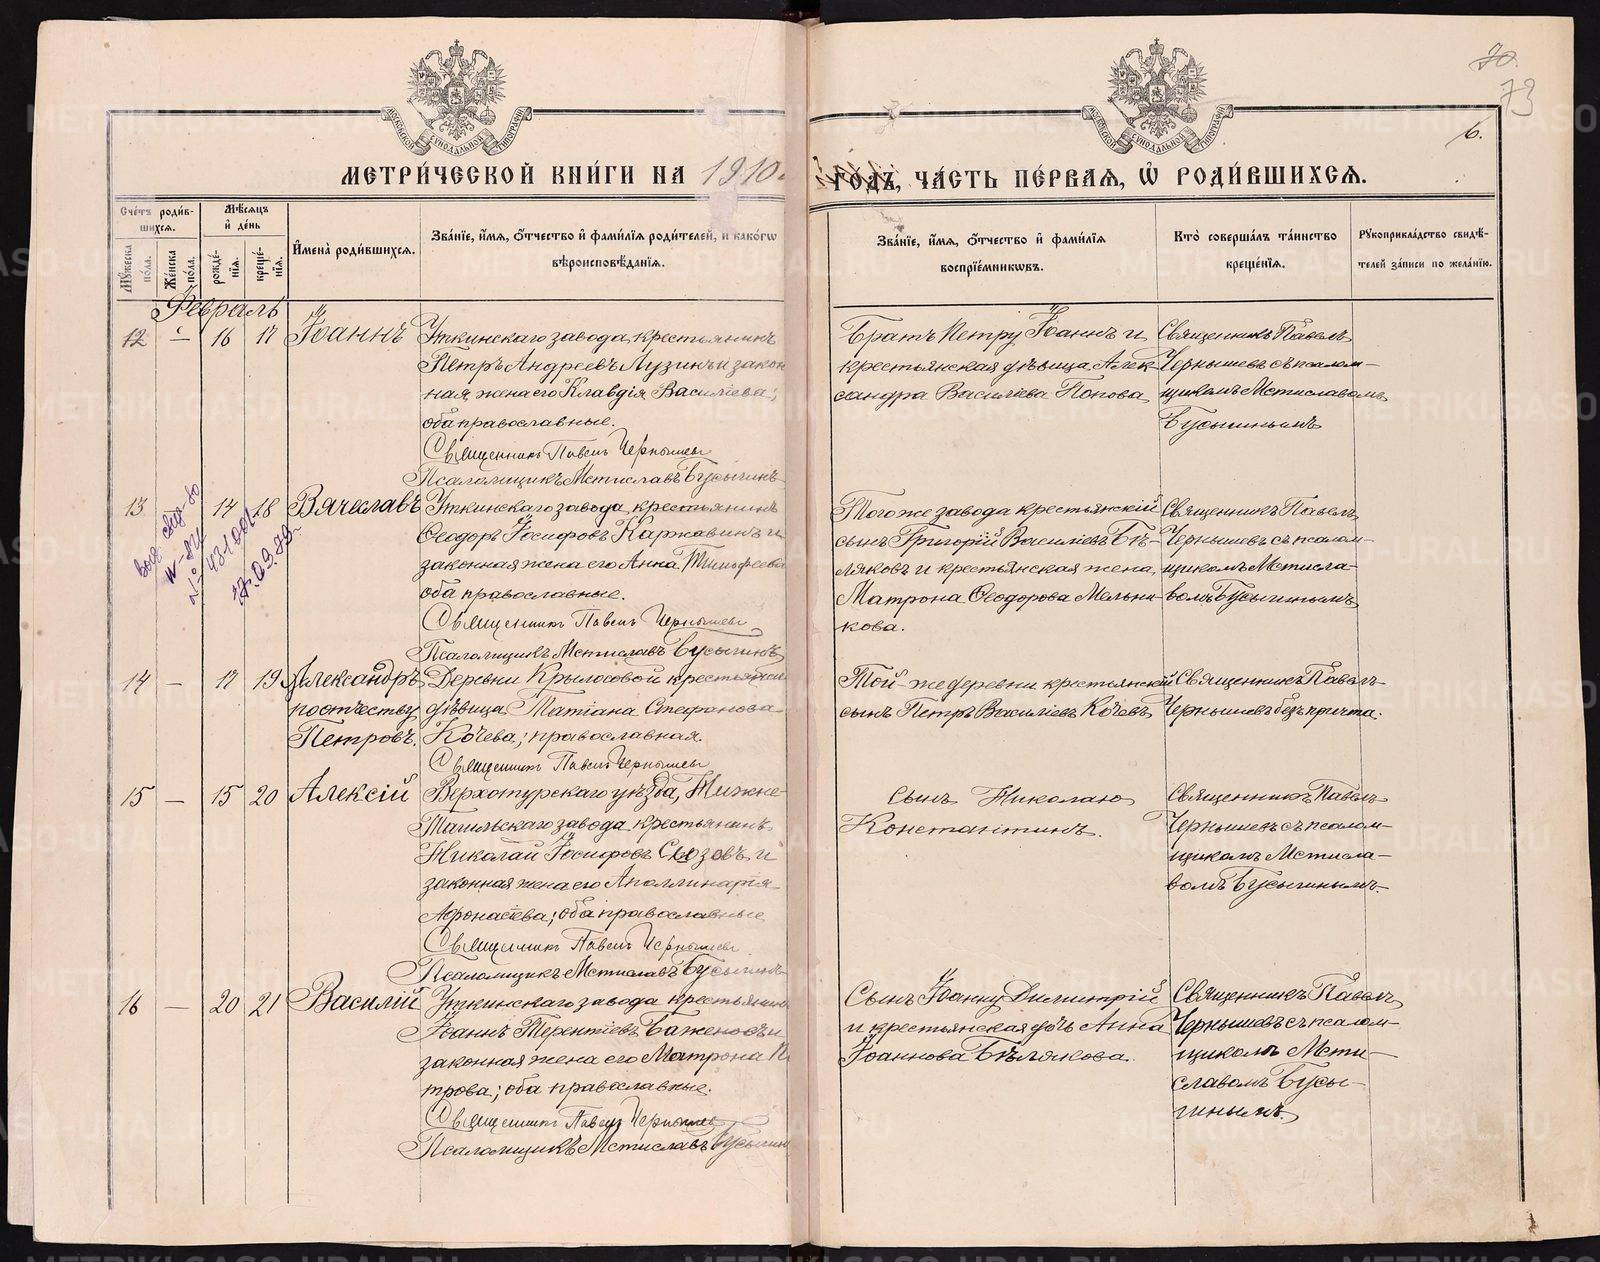 70.
73
6.
МОСКОВСКОЙ СѴНОДАЛЬНОЙ ТИПОГРАФІИ
МОСКОВСКОЙ СѴНОДАЛЬНОЙ ТИПОГРАФІИ
МЕТРИ́ЧЕСКОЙ КНИ́ГИ НА 1910 ГОДЪ, ЧА́СТЬ ПЕ́РВАѦ, Ѡ҆ РОДИ́ВШИХСѦ.
Сче́тъ роди́в-
шихсѧ.
Мꙋ́жеска по́ла.
Же́нска по́ла.
Мѣ́сѧцъ
и҆ де́нь
рожде́-
нїѧ.
креще́-
нїѧ.
И҆мена̀ роди́вшихсѧ.
Зва́нїе, и҆́мѧ, ѻ҆́тчество и҆ фами́лїѧ роди́телей, и҆ како́гѡ
вѣроисповѣ́данїѧ.
Зва́нїе, и҆́мѧ, ѻ҆́тчество и҆ фами́лїѧ
воспрїе́мникѡвъ.
Кто̀ соверша́лъ та́инство
креще́нїѧ.
Рꙋкоприкла́дство свидѣ́-
телей за́писи по жела́нїю.
Февраль
12 – 16 17 Іоаннъ
Уткинскаго завода, крестьянинъ
Петръ Андреевъ Лузинъ и закон
ная жена его Клавдія Василіева;
оба православные.
Священникъ Павелъ Чернышевъ
Псаломщикъ Мстиславъ Бусыгинъ
Братъ Петру Іоаннъ и
крестьянская дѣвица Алек-
сандра Василіева Попова
Священникъ Павелъ
Чернышевъ съ псалом-
щикомъ Мстиславомъ
Бусыгинымъ
13 14 18 Вячеславъ
17.03.79
Уткинскаго завода, крестьянинъ
Ѳеодоръ Іосифовъ Каржавинъ и
законная жена его Анна Тимофеева
оба православные.
Священникъ Павелъ Чернышевъ
Псаломщикъ Мстиславъ Бусыгинъ
Того же завода крестьянскій
сынъ Григорій Василіевъ Бѣ-
ляковъ и крестьянская жена
Матрона Ѳеодорова Мельни-
кова.
Священникъ Павелъ
Чернышевъ съ псалом-
щикомъ Мстисла-
вомъ Бусыгинымъ
14 – 17 19 Александръ
по отчеству
Петровъ.
Деревни Крылосовой крестьянская
дѣвица Татіана Стефанова
Кочева; православная.
Священникъ Павелъ Чернышевъ
Той-же деревни крестьянскій
сынъ Петръ Василіевъ Кочевъ
Священникъ Павелъ
Чернышевъ безъ причта.
15 – 15 20 Алексій
Верхотурскаго уѣзда, Нижне-
Тагильскаго завода крестьянинъ
Николай Іосифовъ Сызовъ и
законная жена его Аполлинарія
Афонасіева; оба православные
Священникъ Павелъ Чернышевъ
Псаломщикъ Мстиславъ Бусыгинъ
Сынъ Николаю
Константинъ.
Священникъ Павелъ
Чернышевъ съ псалом-
щикомъ Мстисла-
вомъ Бусыгинымъ.
16 – 20 21 Василій
Уткинскаго завода крестьянинъ
Іоаннъ Терентіевъ Баженовъ и
законная жена его Матрона Пе
трова; оба православные.
Священникъ Павелъ Чернышевъ
Псаломщикъ Мстиславъ Бусыгинъ
Сынъ Іоанну Димитрій
и крестьянская дочь Анна
Іоаннова Бѣлякова.
Священникъ Павелъ
Чернышевъ съ псалом-
щикомъ Мсти-
славомъ Бусы-
гинымъ.
METRIKI.GASO-URAL.RU